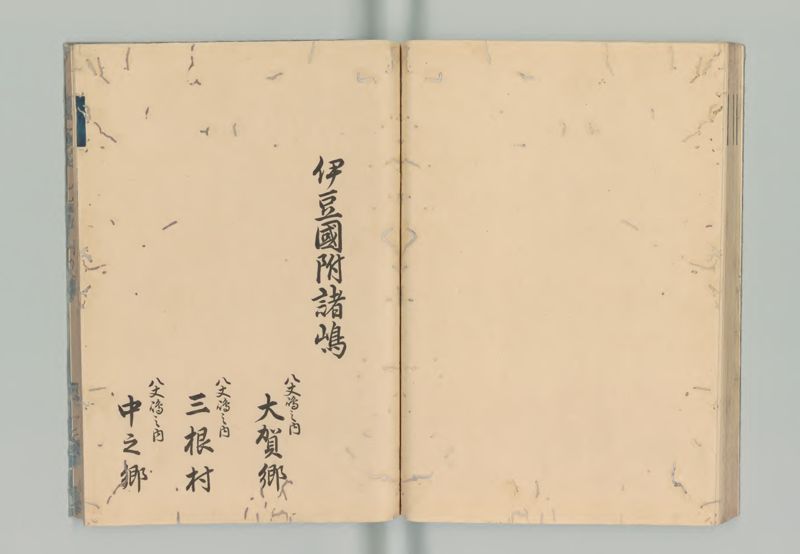 伊豆國附諸嶋
八丈嶋之内
大賀郷
八丈嶋之内
三根村
八丈嶋之内
中之郷